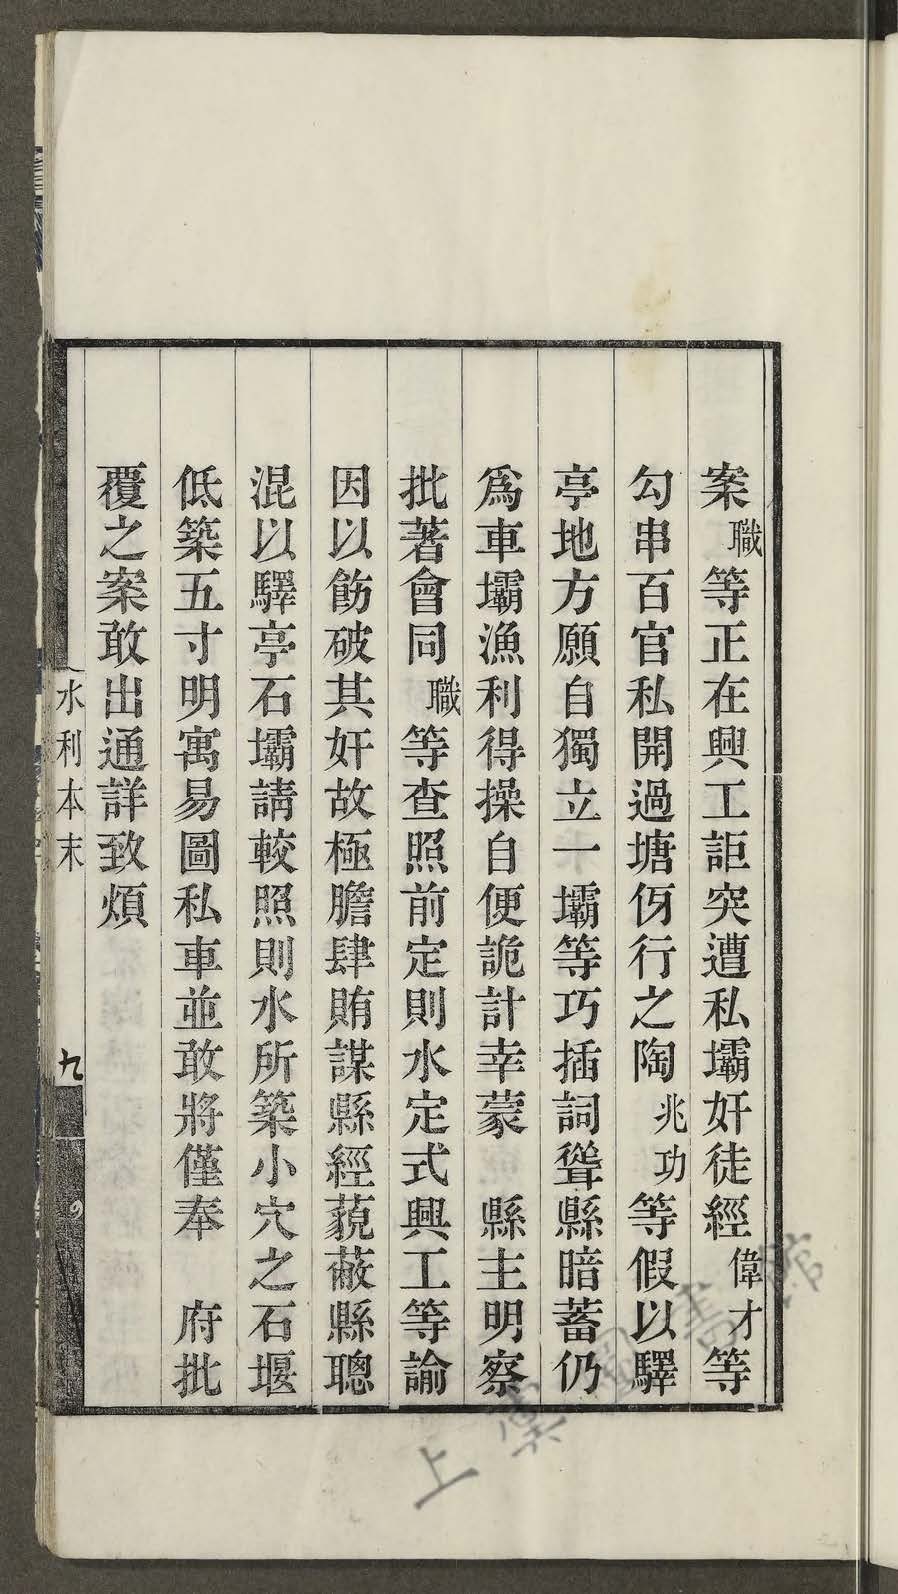 案職等正在興工詎突遭私壩奸徒經偉才等
勾串百官私開過塘伢行之陶兆功等假以驛
亭地方願自獨立一壩等巧插詞聳縣暗蓄仍
爲車壩漁利得操自便詭計幸蒙　縣主明察
批著會同職等查照前定則水定式興工等諭
因以飭破其奸故極膽肆賄謀縣經藐蔽縣聰
混以驛亭石壩請較照則水所築小穴之石堰
低築五寸明寓易圖私車並敢將僅奉　府批
覆之案敢出通詳致煩
水利本末
九
上虞圖書館